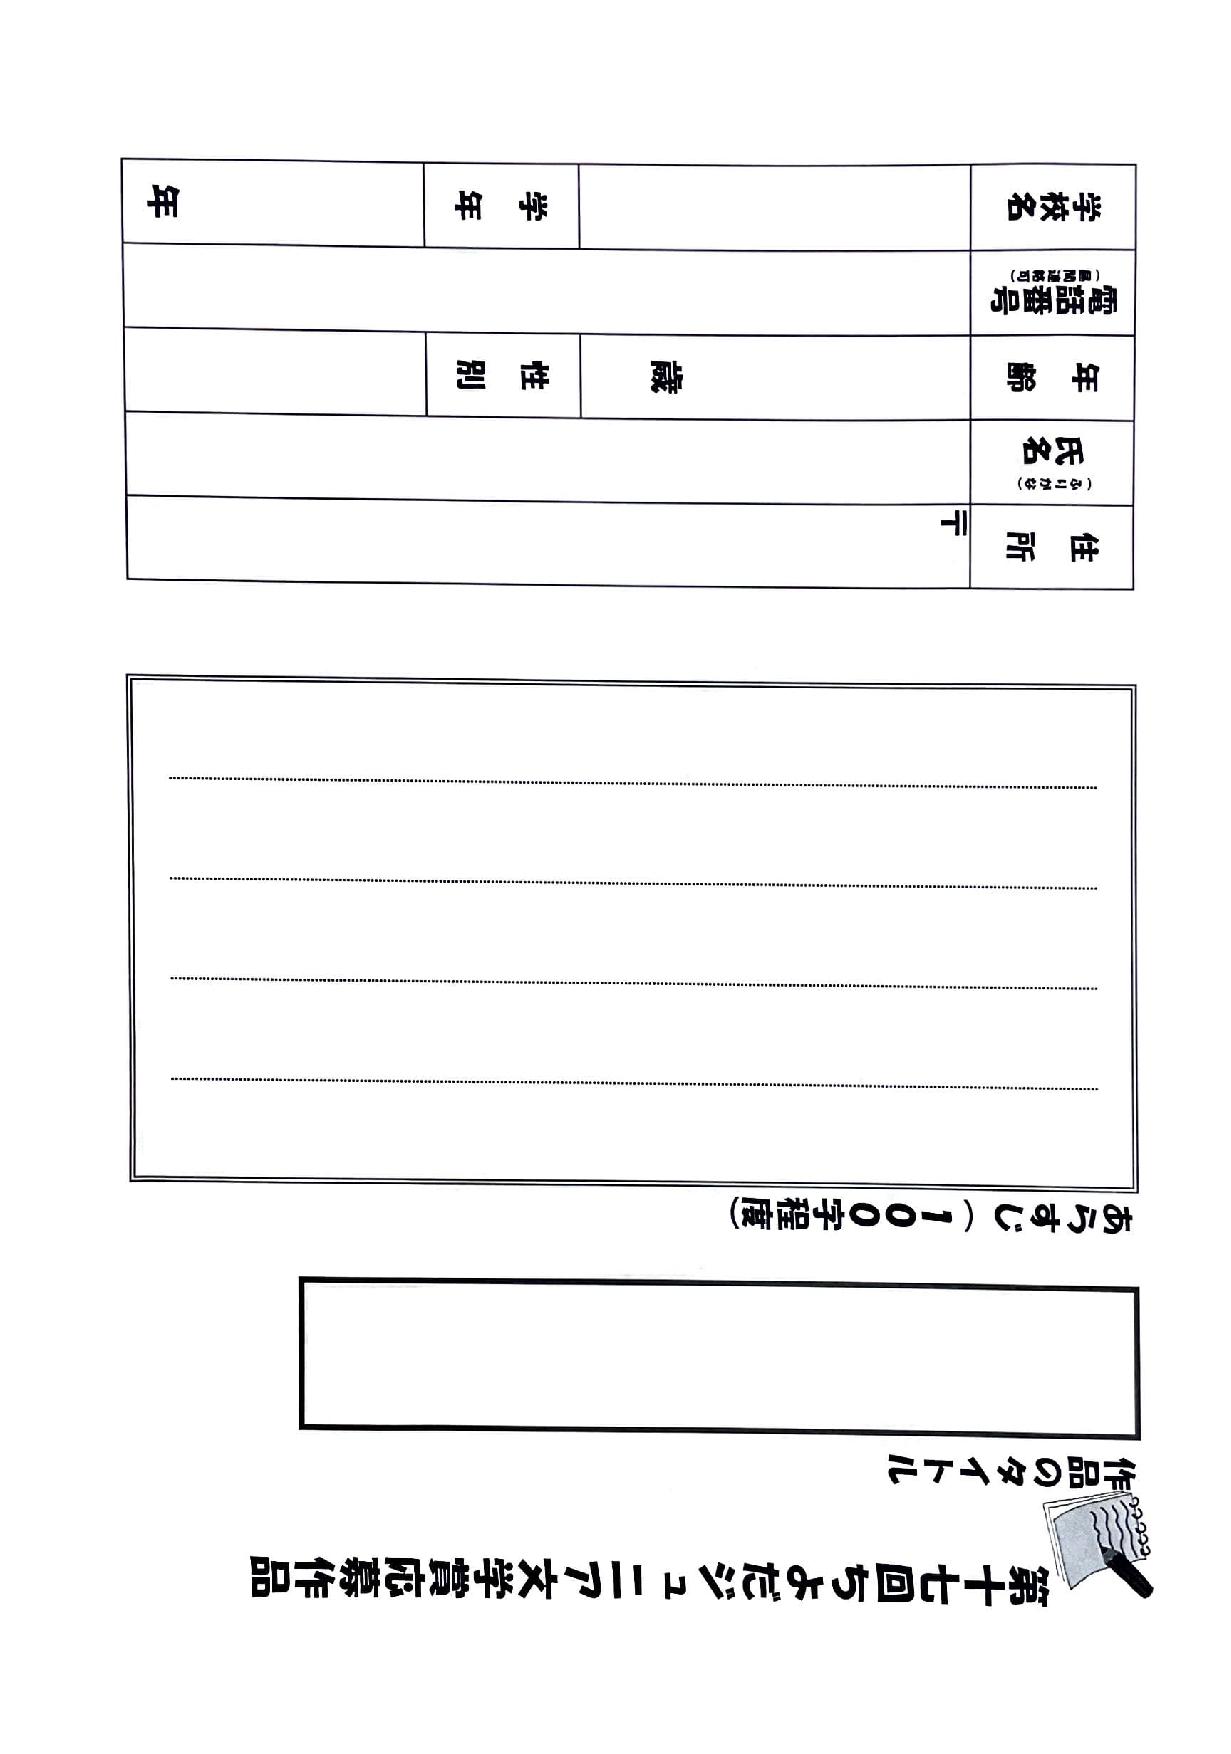 第十七回ちよだジュニア文学賞応募作品
作品のタイトル
あらすじ(100字程度)
住 所 〒
(ふりがな)
氏名
年 齢 歳 性 別
電話番号
(昼間連絡可)
学校名 学 年 年